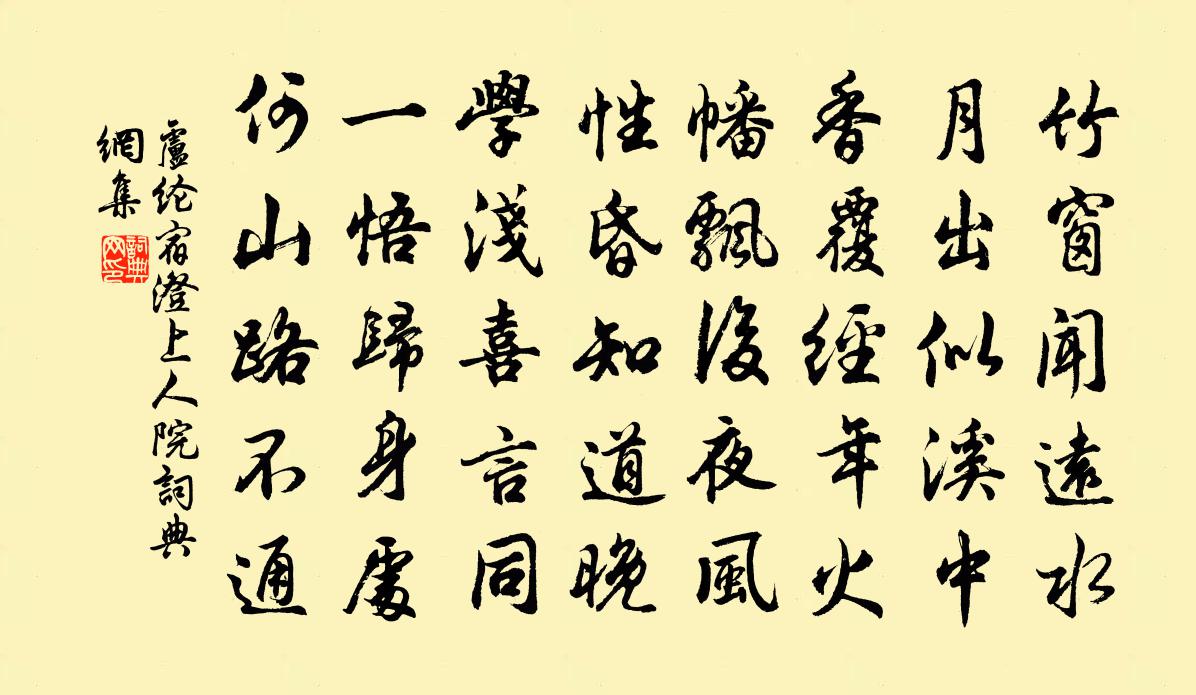 竹窗聞遠水
月出似溪中
香覆經年火
幡飄後夜風
性昏知道晚
學淺喜言同
一悟歸身處
何山路不通
盧纶宿澄上人院詞典
網集
詞典
网印